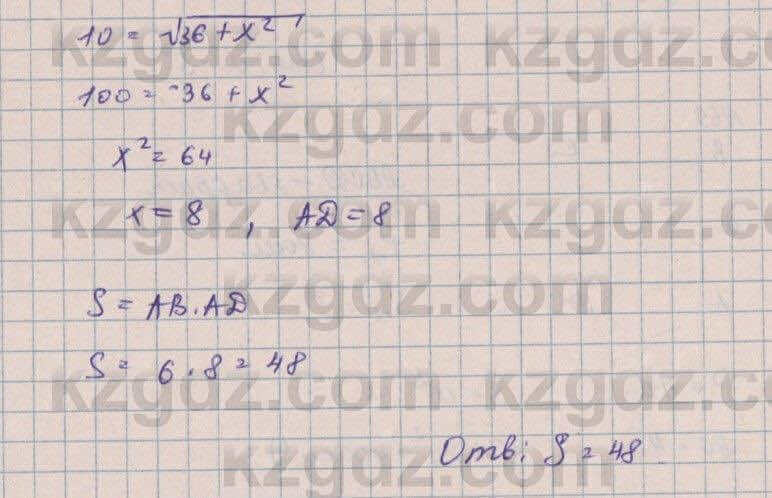 10 = √36 + x²
100 = 36 + x²
x² = 64
x = 8, AD = 8
S = AB · AD
S = 6 · 8 = 48
Отв: S = 48
kzgdz.com kzgdz.com
kzgdz.com
kzgdz.com kzgdz.com
kzgdz.com
kzgdz.com kzgdz.com
kzgdz.com